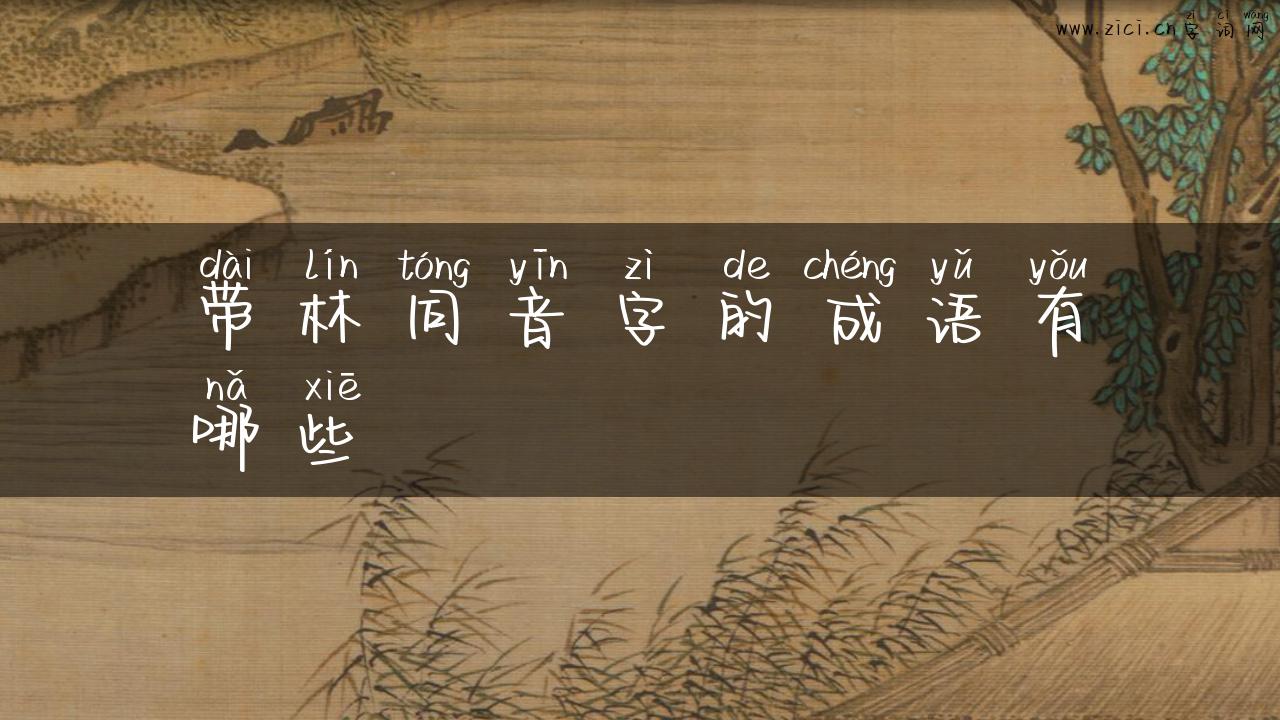 zì cí wǎng
www.zici.cn字词网
dài lín tóng yīn zì de chéng yǔ yǒu
带林同音字的成语有
nǎ xiē
哪些